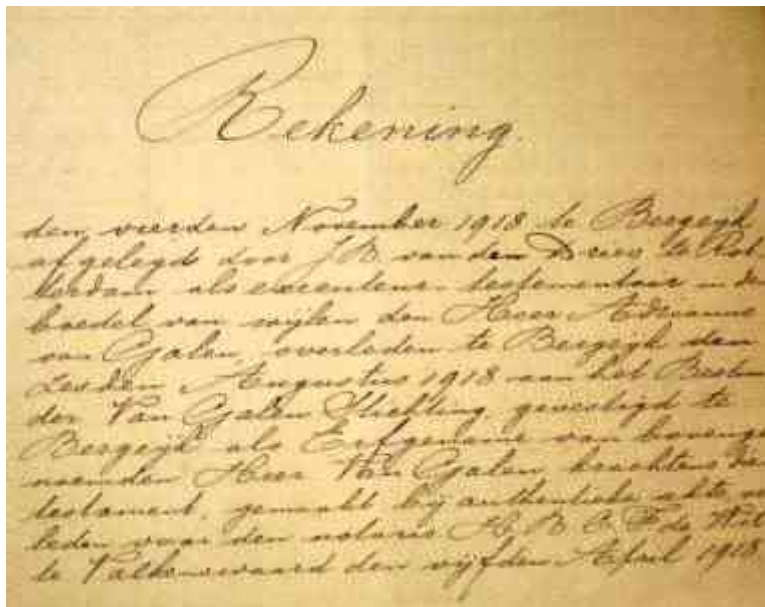 Rekening.
den vierden November 1918 te Bergeyk
afgelegd door J. B. van den Dries te Rot-
terdam als executeur testamentair in den
boedel van wijlen den Heer Adrianus
van Galen, overleden te Bergeyk den
zesden Augustus 1918 aan het Bestuur
der Van Galen Stichting, gevestigd te
Bergeyk als Erfgename van bovenge-
noemden Heer Van Galen krachtens diens
testament, gemaakt bij authentieke akte, ver-
leden voor den notaris de
te Valkenswaard den vijfden April 1918.